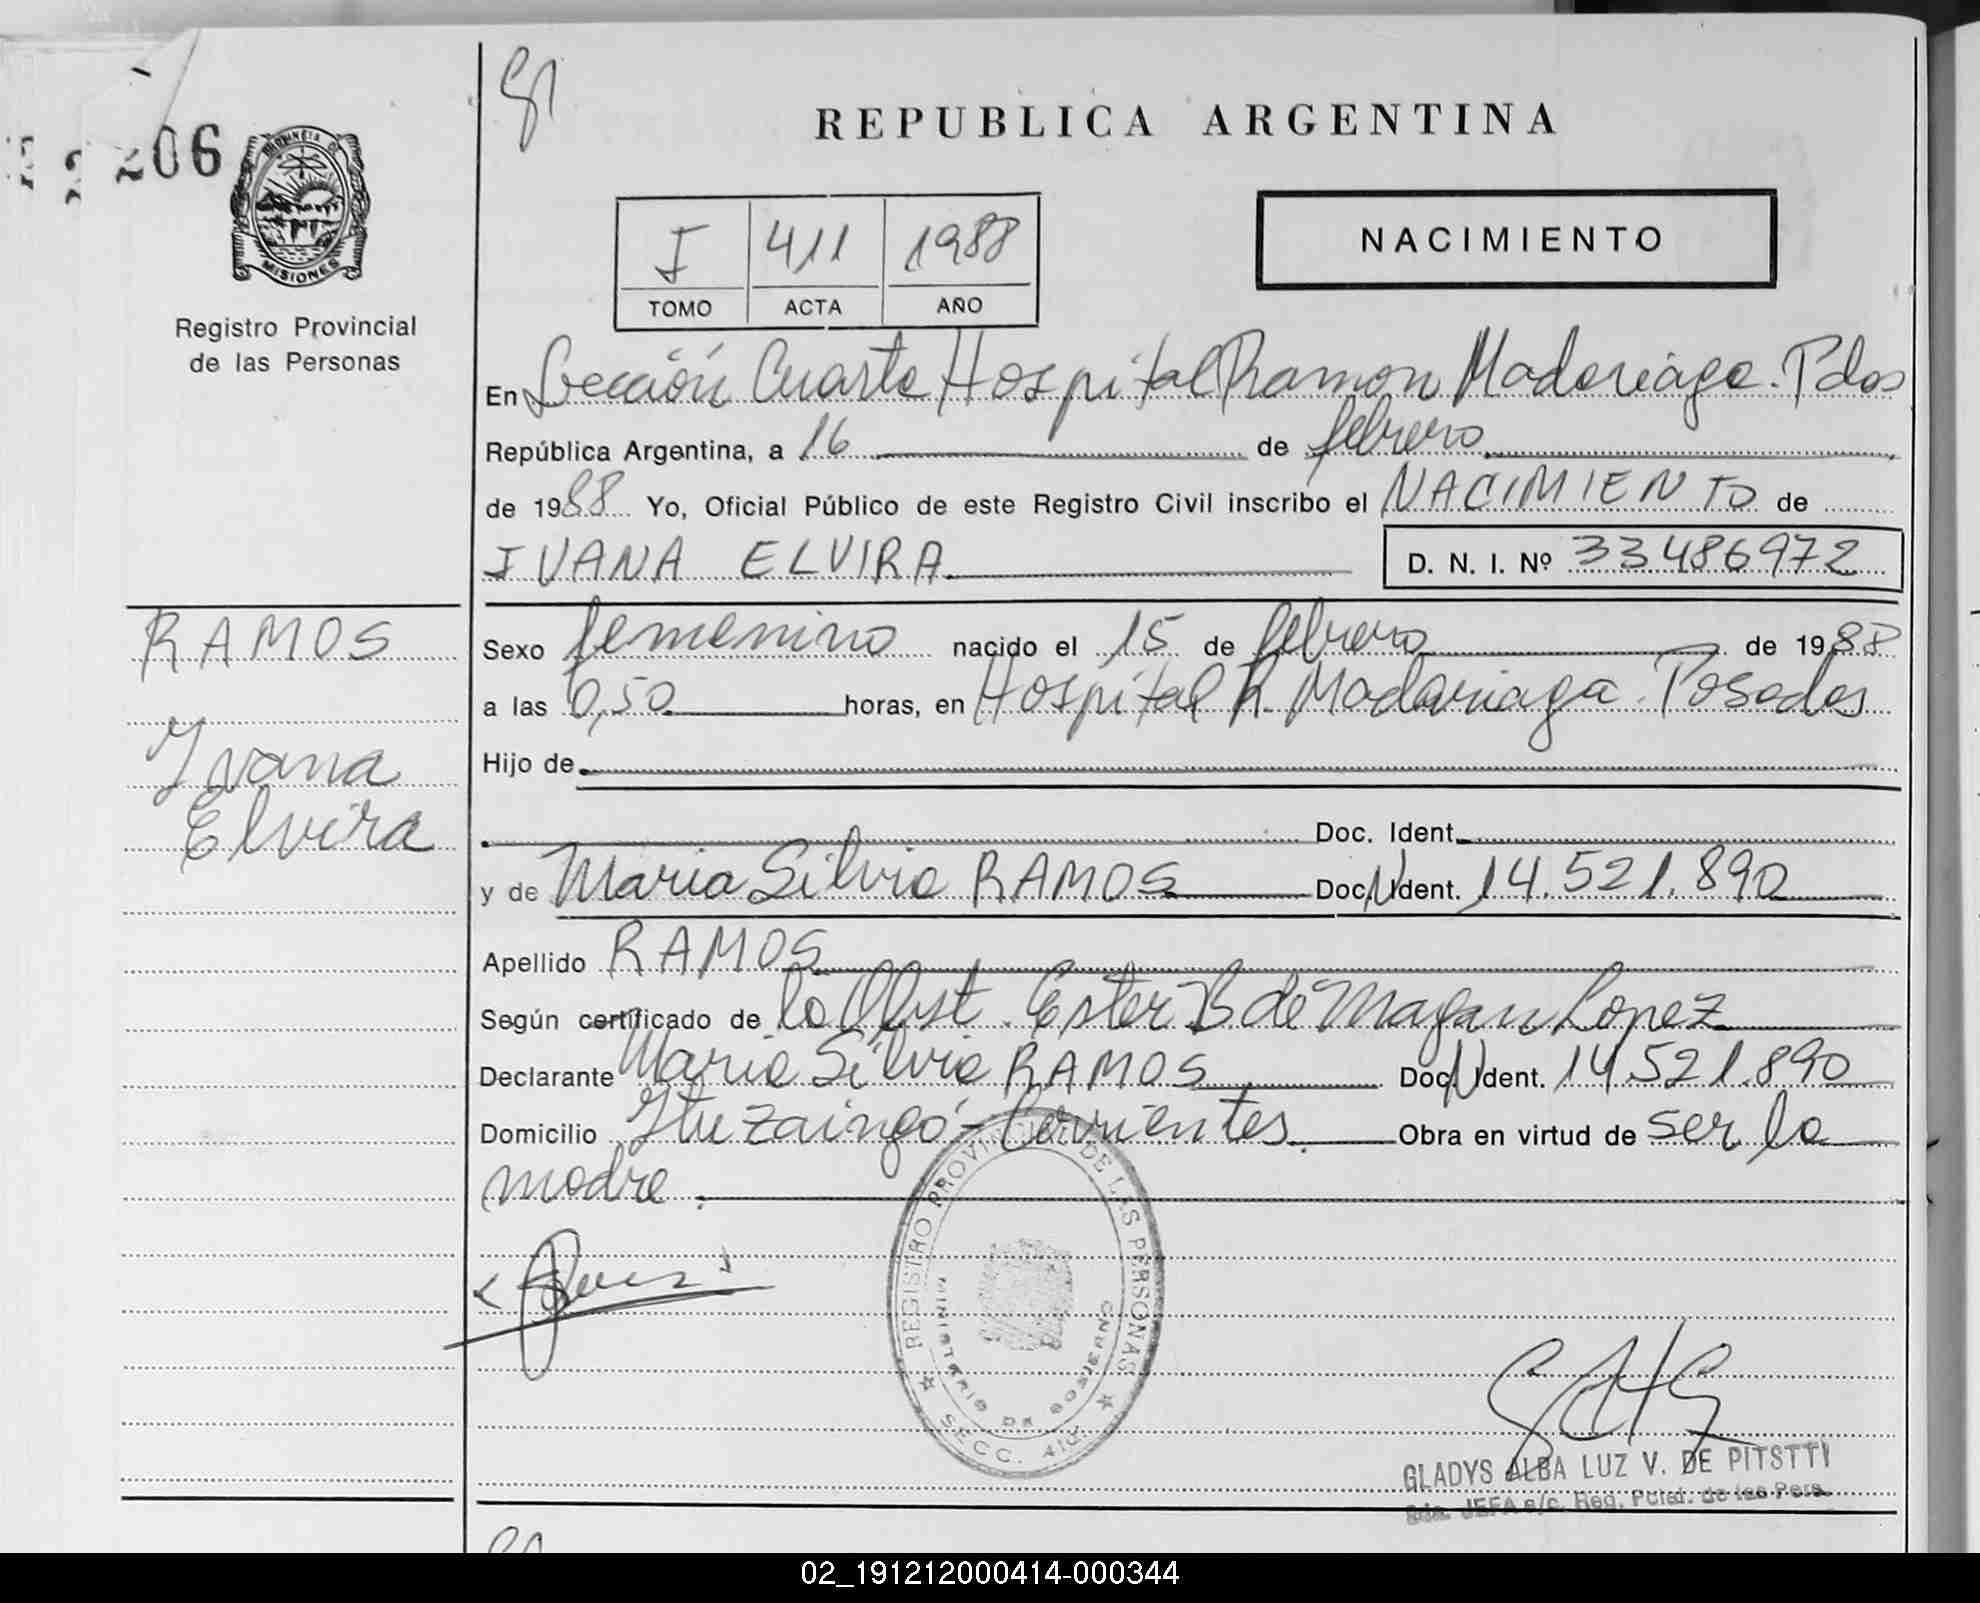 206
PROVINCIA DE
MISIONES
Registro Provincial
de las Personas
RAMOS
Ivana
Elvira
REPUBLICA ARGENTINA
I 411 1988
TOMO ACTA AÑO
NACIMIENTO
En Sección Cuarta Hospital Ramon Madariaga. Pdas
República Argentina, a 16 de febrero
de 1988 Yo, Oficial Público de este Registro Civil inscribo el NACIMIENTO de
IVANA ELVIRA D. N. I. Nº 33486972
Sexo femenino nacido el 15 de febrero de 1988
a las 0,50 horas, en Hospital R. Madariaga. Posadas
Hijo de
Doc. Ident.
y de Maria Silvia RAMOS Doc. Ident. 14.521.890
Apellido RAMOS
Según certificado de la Obst. Ester B de Magan Lopez
Declarante Maria Silvia RAMOS Doc. Ident. 14.521.890
Domicilio Ituzaingó - Corrientes. Obra en virtud de ser la
madre.
REGISTRO PROVINCIAL DE LAS PERSONAS
MINISTERIO DE GOBIERNO
SECC. 4ta.
GLADYS ALBA LUZ V. DE PITSTTI
JEFA a/c. Reg. Pcial. de las Pers.
02_191212000414-000344